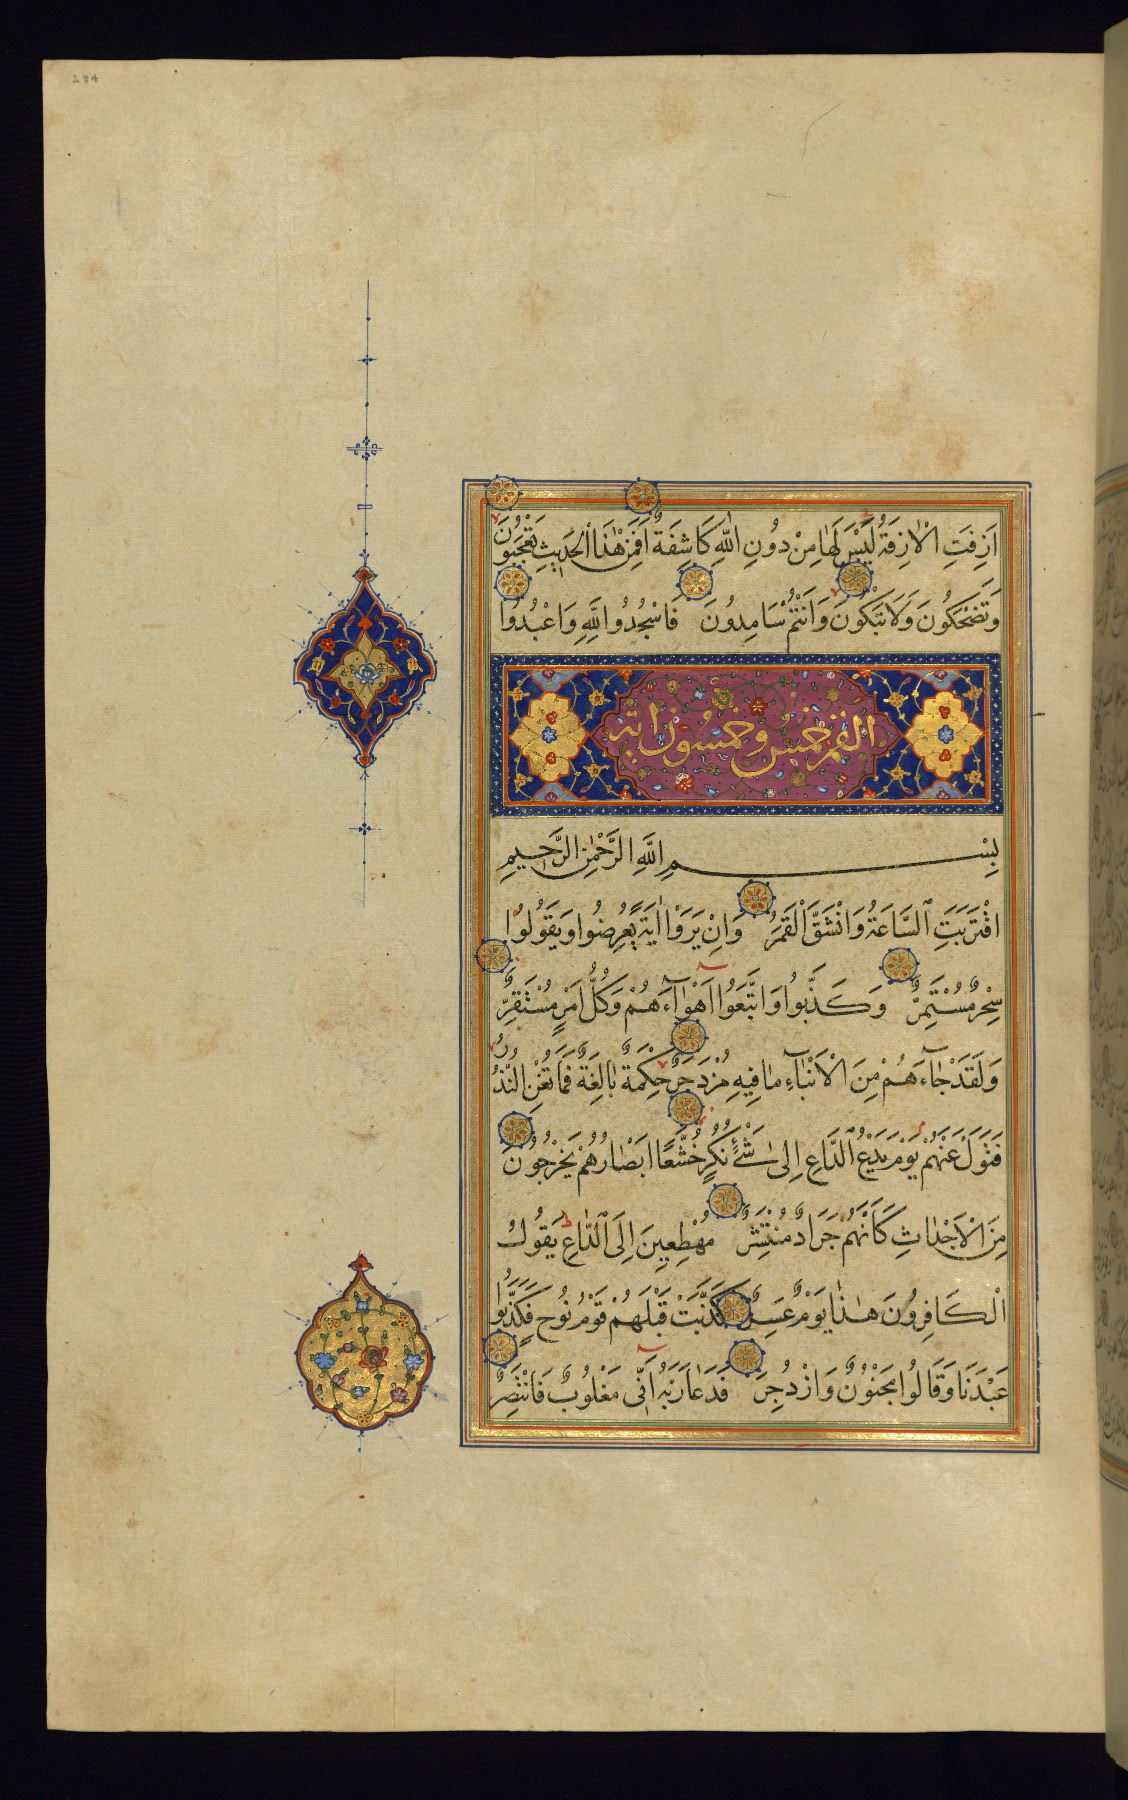 284
اَزِفَتِ الْاٰزِفَةُ لَيْسَ لَهَا مِنْ دُونِ اللّٰهِ كَاشِفَةٌ اَفَمِنْ هٰذَا الْحَدِيثِ تَعْجَبُونَ
وَتَضْحَكُونَ وَلَا تَبْكُونَ وَاَنْتُمْ سَامِدُونَ فَاسْجُدُوا لِلّٰهِ وَاعْبُدُوا
القمر خمس وخمسون آية
بِسْمِ اللّٰهِ الرَّحْمٰنِ الرَّحِيمِ
اقْتَرَبَتِ السَّاعَةُ وَانْشَقَّ الْقَمَرُ وَاِنْ يَرَوْا اٰيَةً يُعْرِضُوا وَيَقُولُوا
سِحْرٌ مُسْتَمِرٌّ وَكَذَّبُوا وَاتَّبَعُوا اَهْوَاۤءَهُمْ وَكُلُّ اَمْرٍ مُسْتَقِرٌّ
وَلَقَدْ جَاۤءَهُمْ مِنَ الْاَنْبَاۤءِ مَا فِيهِ مُزْدَجَرٌ حِكْمَةٌ بَالِغَةٌ فَمَا تُغْنِ النُّذُرُ
فَتَوَلَّ عَنْهُمْ يَوْمَ يَدْعُ الدَّاعِ اِلٰى شَيْءٍ نُكُرٍ خُشَّعًا اَبْصَارُهُمْ يَخْرُجُونَ
مِنَ الْاَجْدَاثِ كَاَنَّهُمْ جَرَادٌ مُنْتَشِرٌ مُهْطِعِينَ اِلَى الدَّاعِ يَقُولُ
الْكَافِرُونَ هٰذَا يَوْمٌ عَسِرٌ كَذَّبَتْ قَبْلَهُمْ قَوْمُ نُوحٍ فَكَذَّبُوا
عَبْدَنَا وَقَالُوا مَجْنُونٌ وَازْدُجِرَ فَدَعَا رَبَّهُ اَنِّي مَغْلُوبٌ فَانْتَصِرْ